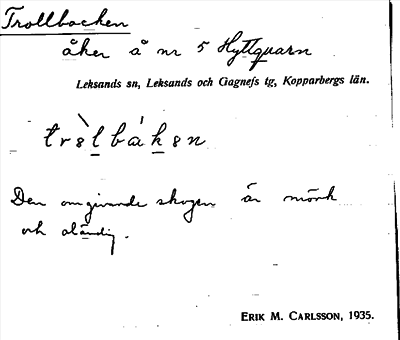 Trollbacken
åker å nr 5 Hyttkvarn
Leksands sn, Leksands och Gagnefs tg, Kopparbergs län.
tròlbákən
Den omgivande skogen är mörk
och oländig.
ERIK M. CARLSSON, 1935.